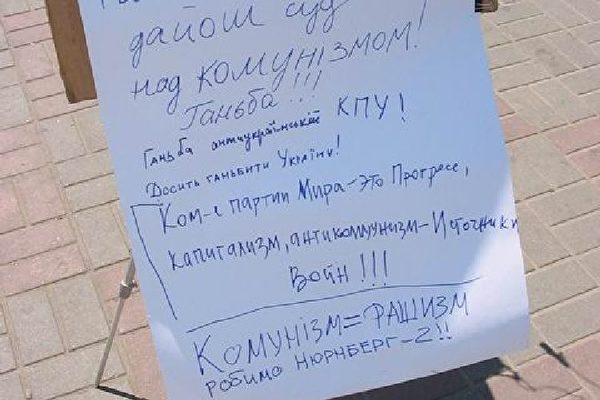 дайош суд
над комунізмом!
Ганьба!!!
Ганьба антиукраїнській КПУ!
Досить ганьбити Україну!
Ком-е партии Мира-это Прогресс,
капитализм, антикоммунизм-Источники
Войн!!!
Комунізм=Фашизм
робимо Нюрнберг-2!!